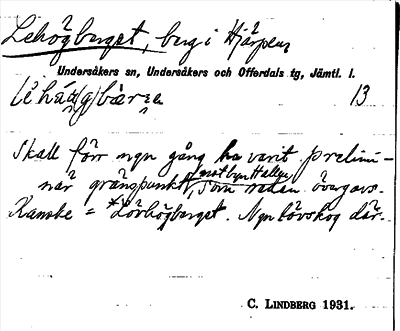 Lehögberget, berg i Hjärpen
Undersåkers sn, Undersåkers och Offerdals tg, Jämtl. l.
13
Skall förr ngn gång ha varit prelimi-
mot byn Hallen
när gränspunkt, som sedan övergavs.
Kanske = *Lövhögberget. Ngn lövskog där.
C. LINDBERG 1931.